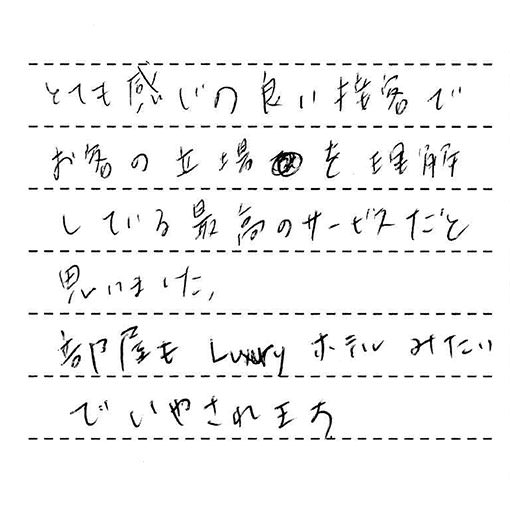 とても感じの良い接客で
お客の立場を理解
している最高のサービスだと
思いました,
部屋も Luxury ホテル みたい
でいやされます